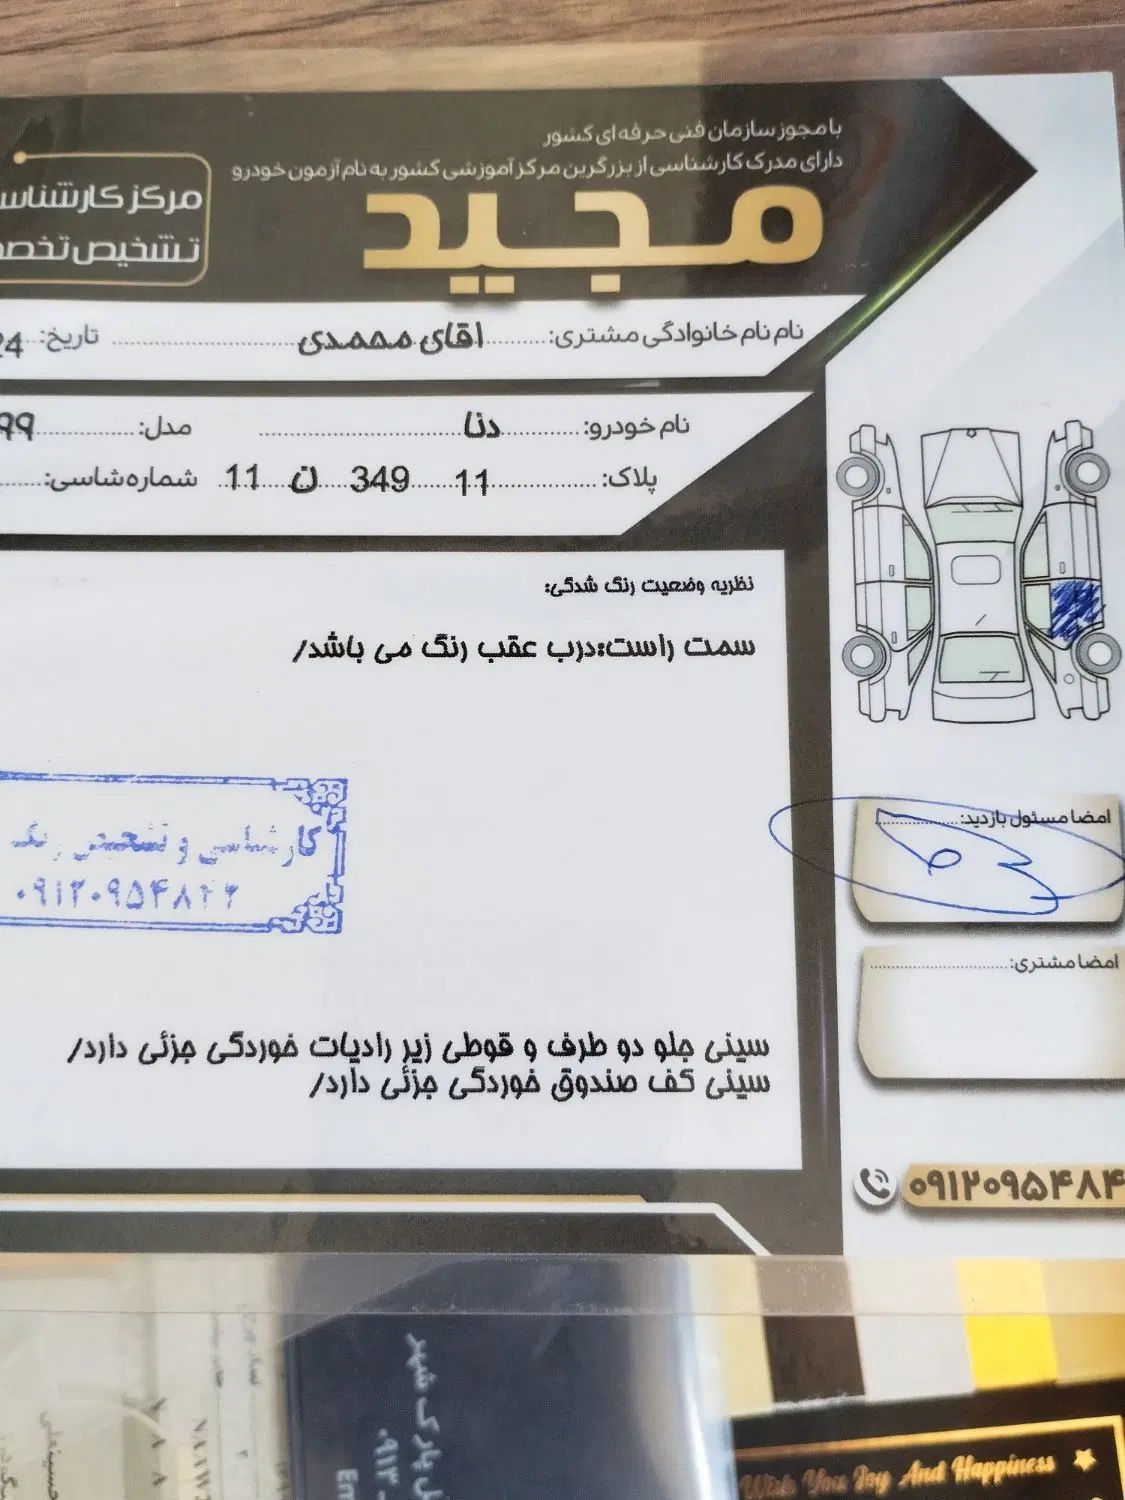 با مجوز سازمان فنی حرفه ای کشور
دارای مدرک کارشناسی از بزرگترین مرکز آموزشی کشور به نام آزمون خودرو
مجید
مرکز کارشناس
تشخیص تخص
نام نام خانوادگی مشتری: اقای محمدی تاریخ: 24
نام خودرو: دنا مدل: 99
پلاک: 11 349 ن 11 شماره شاسی:
نظریه وضعیت رنگ شدگی:
سمت راست:درب عقب رنگ می باشد/
کارشناسی و تشخیص رنگ
امضا مسئول بازدید:
امضا مشتری:
سینی جلو دو طرف و قوطی زیر رادیات خوردگی جزئی دارد/
سینی کف صندوق خوردگی جزئی دارد/
۰۹۱۲۰۹۵۴۸۴
Wish You Joy And Happiness